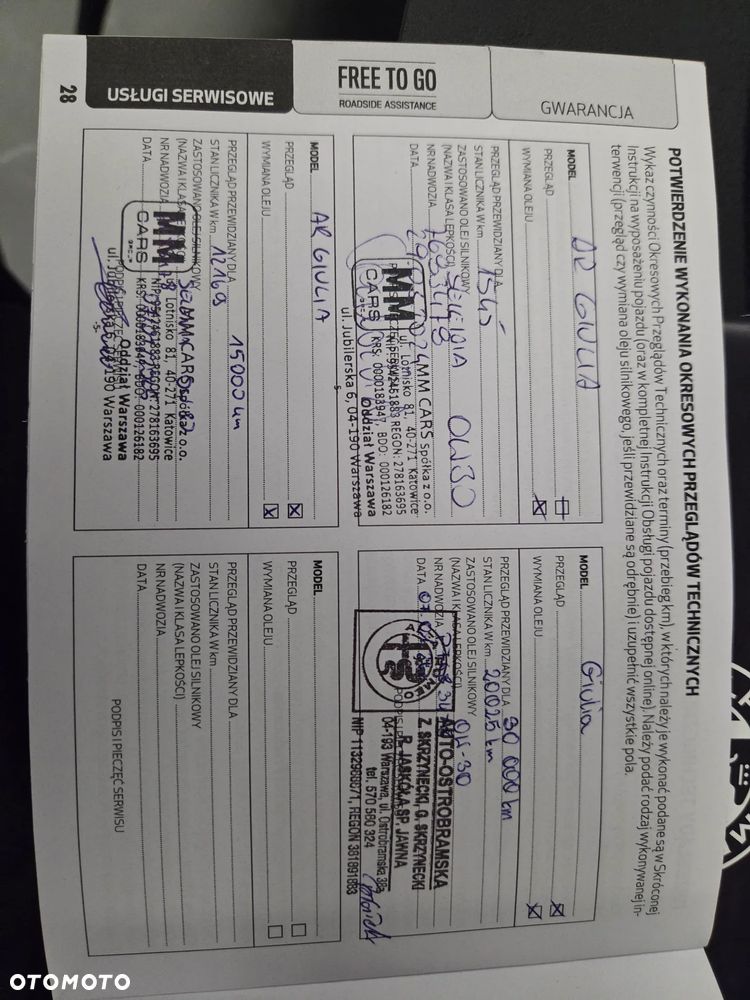 GWARANCJA
FREE TO GO
ROADSIDE ASSISTANCE
USŁUGI SERWISOWE
28
POTWIERDZENIE WYKONANIA OKRESOWYCH PRZEGLĄDÓW TECHNICZNYCH
Wykaz czynności Okresowych Przeglądów Technicznych oraz terminy (przebieg km), w których należy je wykonać podane są w Skróconej
Instrukcji na wyposażeniu pojazdu (oraz w kompletnej Instrukcji Obsługi pojazdu dostępnej online). Należy podać rodzaj wykonywanej in-
terwencji (przegląd czy wymiana oleju silnikowego, jeśli przewidziane są odrębnie) i uzupełnić wszystkie pola.
MODEL AR GIULIA
PRZEGLĄD
WYMIANA OLEJU
PRZEGLĄD PRZEWIDZIANY DLA
STAN LICZNIKA W km 1545
ZASTOSOWANO OLEJ SILNIKOWY
(NAZWA I KLASA LEPKOŚCI) SELENIA 0W30
NR NADWOZIA
DATA
MM CARS
MM CARS Spółka z o.o.
ul. Lotnisko 81, 40-271 Katowice
NIP: 9542461883 REGON: 278163695
KRS: 0000183947, BDO: 000126182
Oddział Warszawa
ul. Jubilerska 6, 04-190 Warszawa
-5-
MODEL Giulia
PRZEGLĄD
WYMIANA OLEJU
PRZEGLĄD PRZEWIDZIANY DLA 30 000 km
STAN LICZNIKA W km 20025 km
ZASTOSOWANO OLEJ SILNIKOWY
(NAZWA I KLASA LEPKOŚCI) 0W-30
NR NADWOZIA
DATA
AUTO-OSTROBRAMSKA
Z. SKRZYNECKI, G. SKRZYNECKI
R. JASKÓŁA SP. JAWNA
04-193 Warszawa, ul. Ostrobramska 38a
tel. 570 580 324
NIP 1132968071, REGON 381891883
MODEL AR GIULIA
PRZEGLĄD
WYMIANA OLEJU
PRZEGLĄD PRZEWIDZIANY DLA 15000 km
STAN LICZNIKA W km 12169
ZASTOSOWANO OLEJ SILNIKOWY
(NAZWA I KLASA LEPKOŚCI)
NR NADWOZIA
DATA
MM CARS
GROUP
MM CARS Spółka z o.o.
ul. Lotnisko 81, 40-271 Katowice
NIP: 9542461883 REGON: 278163695
KRS: 0000183947, BDO: 000126182
Oddział Warszawa
ul. Jubilerska 6, 04-190 Warszawa
-5-
MODEL
PRZEGLĄD
WYMIANA OLEJU
PRZEGLĄD PRZEWIDZIANY DLA
STAN LICZNIKA W km
ZASTOSOWANO OLEJ SILNIKOWY
(NAZWA I KLASA LEPKOŚCI)
NR NADWOZIA
DATA
PODPIS I PIECZĘĆ SERWISU
OTOMOTO